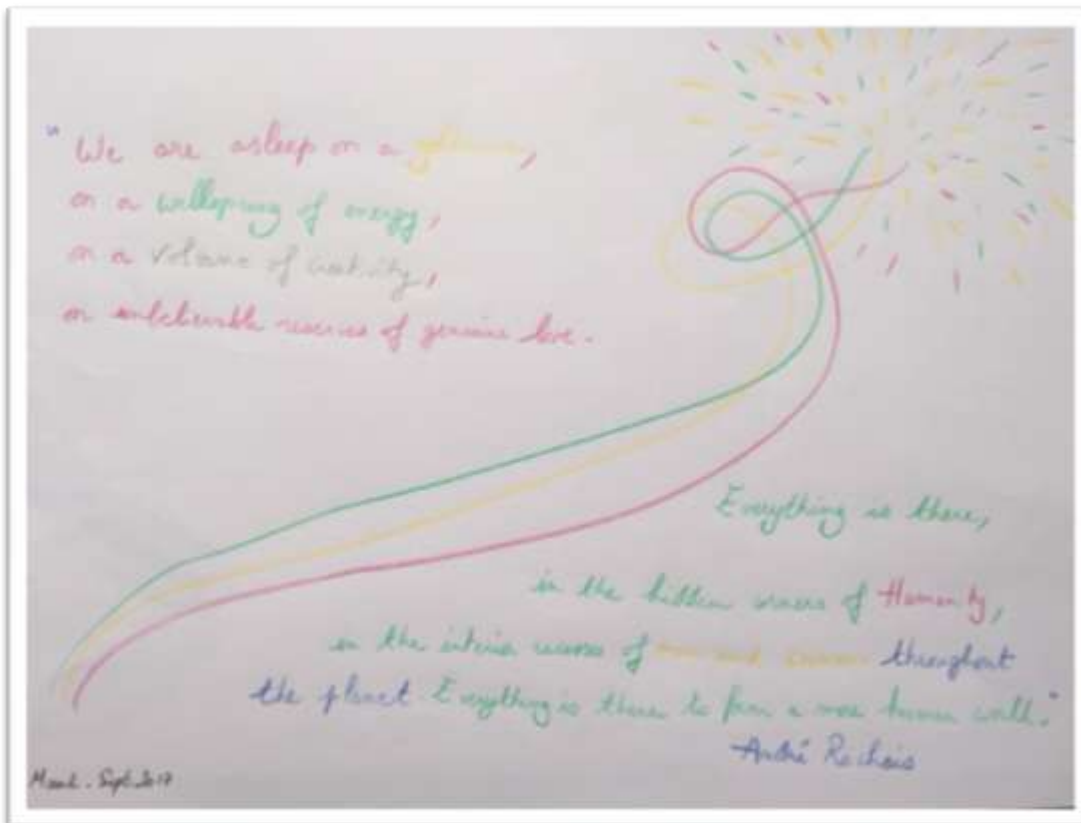 "We are asleep on a
on a wellspring of energy,
on a volcano of creativity,
on unbelievable reserves of genuine love.
Everything is there,
in the hidden corners of Humanity,
in the interior recesses of men and women throughout
the planet Everything is there to form a more human world."
André Rochais
Sept. 2017